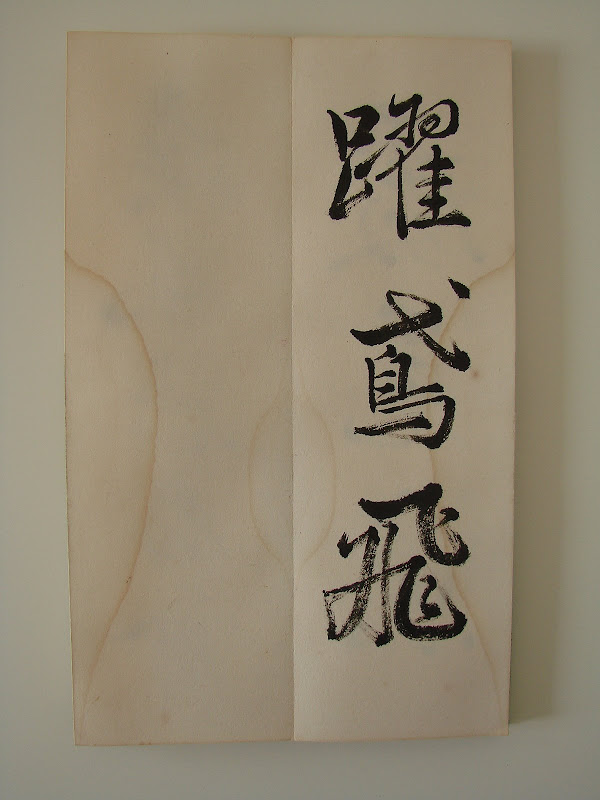 躍鳶飛